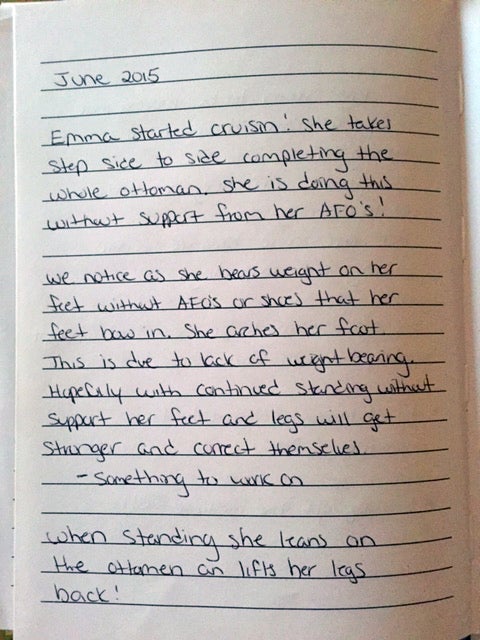 June 2015
Emma started cruisin! She takes
step side to side completing the
whole ottoman. She is doing this
without support from her AFO's!
we notice as she bears weight on her
feet without AFO's or shoes that her
feet bow in. She arches her foot.
This is due to lack of weight bearing.
Hopefully with continued standing without
support her feet and legs will get
stronger and correct themselves.
- Something to work on
when standing she leans on
the ottomen an lifts her legs
back!